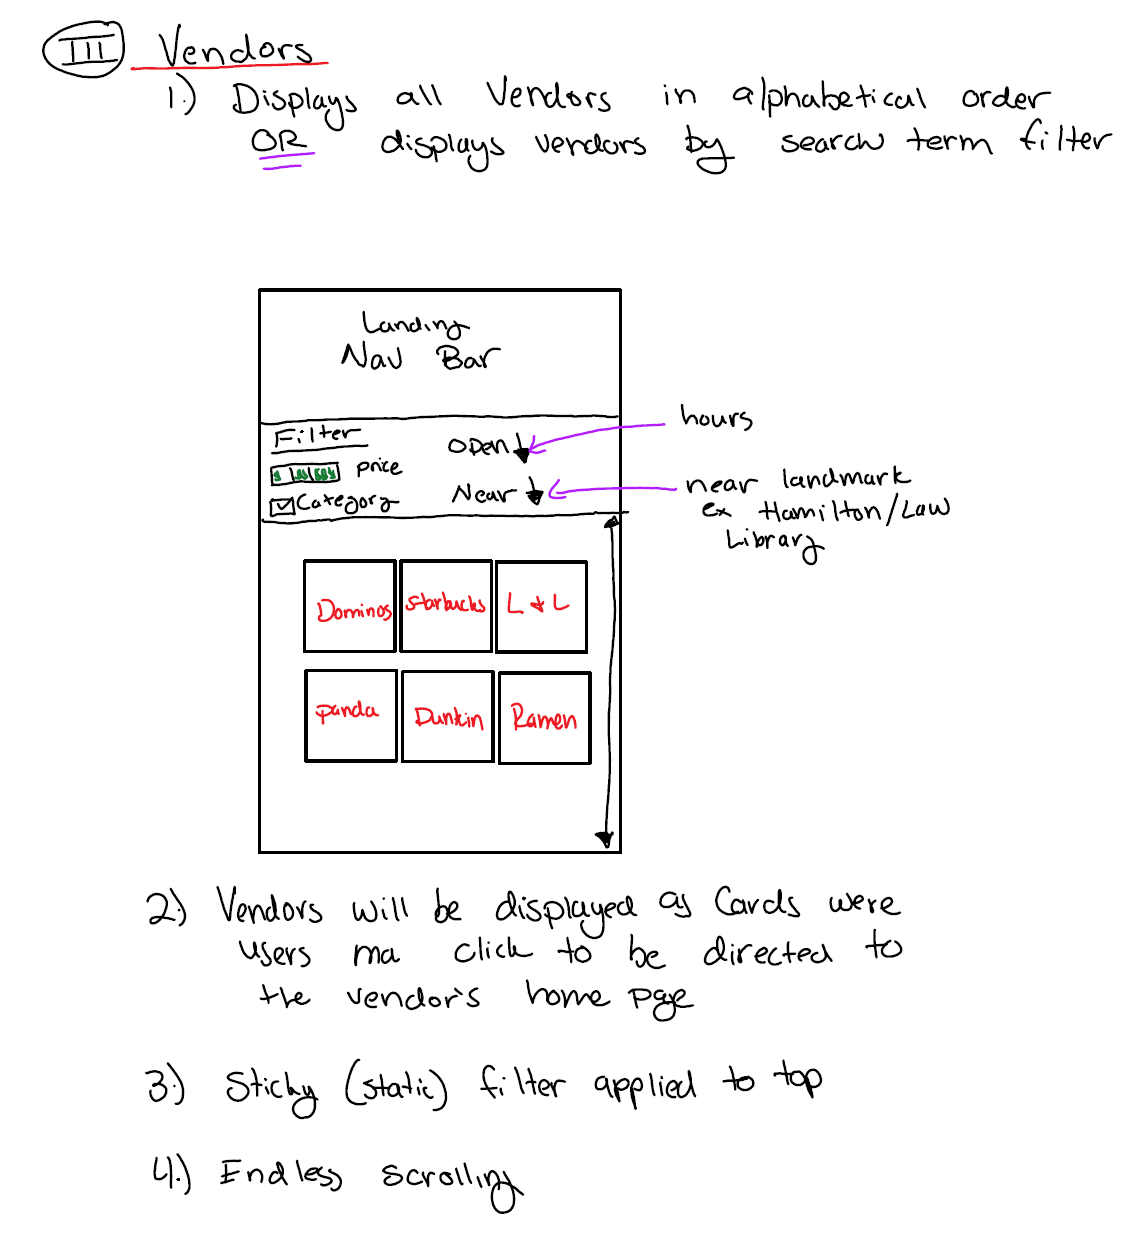 III Vendors
1.) Displays all Vendors in alphabetical order
OR displays vendors by search term filter
Landing
Nav Bar
Filter
Open
hours
$ price
Category
Near
near landmark
ex Hamilton/Law
Library
Dominos Starbucks L & L
panda Dunkin Ramen
2.) Vendors will be displayed as Cards were
users ma click to be directed to
the vendor's home page
3.) Sticky (static) filter applied to top
4.) Endless scrolling